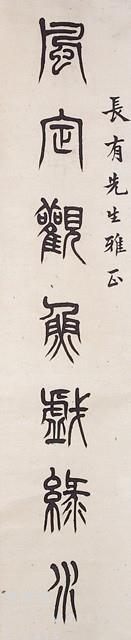 長有先生雅正
風定觀魚戲綠水